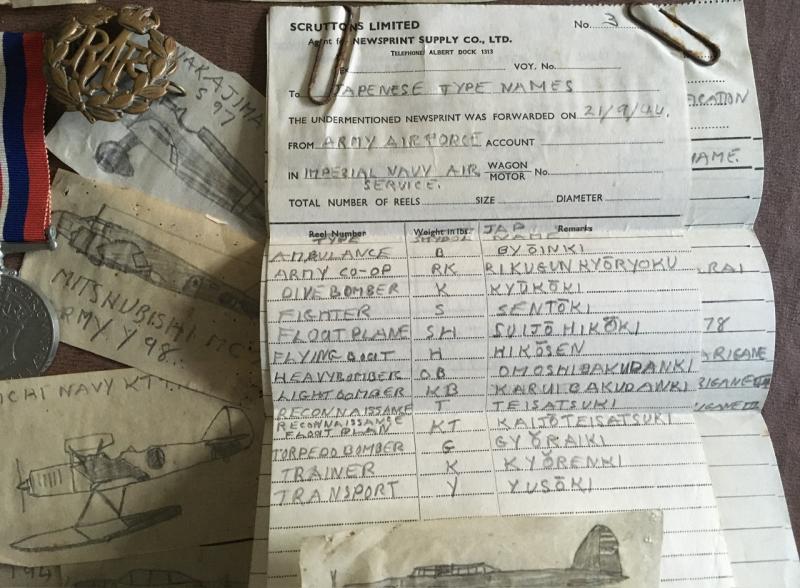 SCRUTTONS LIMITED
No. 3
Agent for NEWSPRINT SUPPLY CO., LTD.
TELEPHONE ALBERT DOCK 1313
VOY. No.
To JAPENESE TYPE NAMES
THE UNDERMENTIONED NEWSPRINT WAS FORWARDED ON 21/9/44.
FROM ARMY AIRFORCE ACCOUNT
IN IMPERIAL NAVY AIR SERVICE. WAGON MOTOR No.
TOTAL NUMBER OF REELS SIZE DIAMETER
Reel Number Weight in lbs. Remarks
TYPE SYMBOL JAP NAME
AMBULANCE B BYŌINKI
ARMY CO-OP RK RIKUGUN KYŌRYOKU
DIVE BOMBER K KYŪKŌKI
FIGHTER S SENTŌKI
FLOAT PLANE SH SUIJŌ HIKŌKI
FLYING BOAT H HIKŌSEN
HEAVY BOMBER OB OMOSHI BAKUDANKI
LIGHT BOMBER KB KARUI BAKUDANKI
RECONNAISSANCE T TEISATSUKI
RECONNAISSANCE FLOAT PLAN KT KAIJŌTEISATSUKI
TORPEDO BOMBER G GYŌRAIKI
TRAINER K KYŌRENKI
TRANSPORT Y YUSŌKI
RAF
NAKAJIMA
S 97
MITSHUBISHI MC
ARMY Y 98.
AICHI NAVY KT
194
ICATION
NAME.
RAI
78
ARIGANE